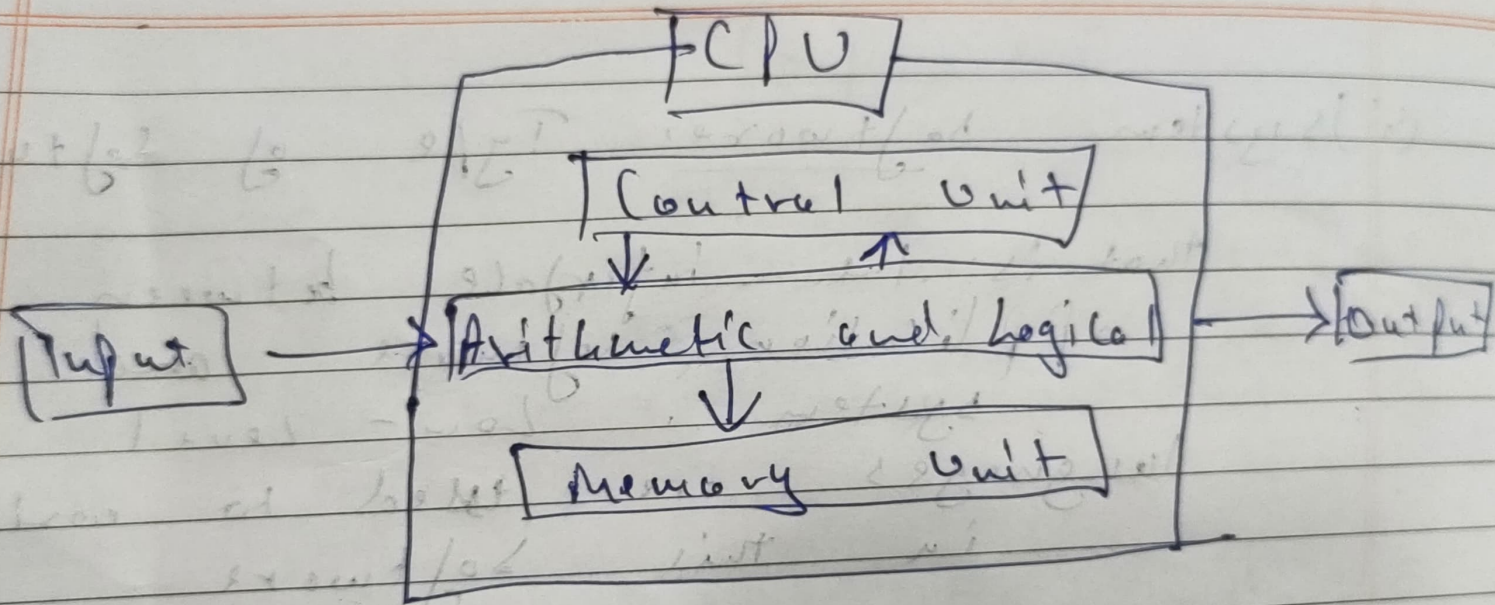 CPU
Control Unit
Input
Arithmetic and Logical
Output
Memory Unit